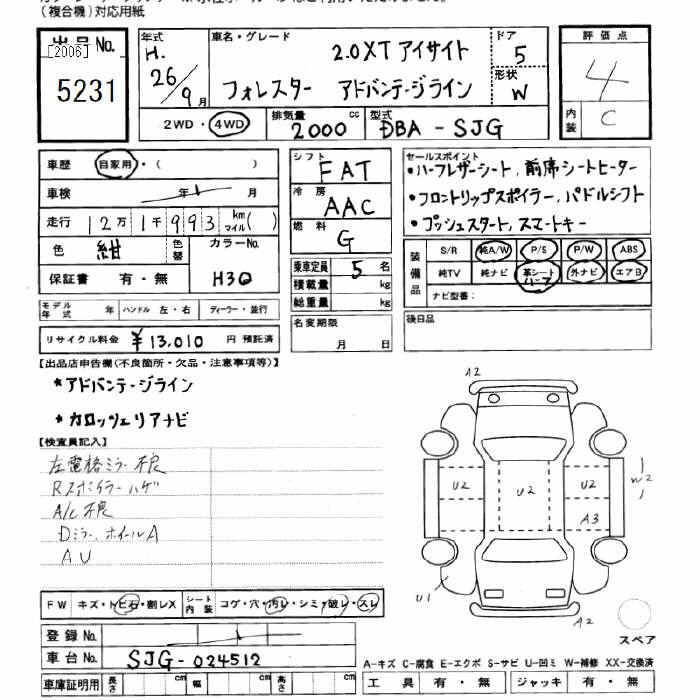 (複合機)対応用紙
出品No. [2006] 5231
年式 H. 26/9月
車名・グレード 2.0XT アイサイト
フォレスター アドバンテージライン
ドア 5
形状 W
評価点 4
内装 C
2WD・4WD 排気量 2000cc 型式 DBA-SJG
車歴 自家用・( )
車検 年 月
走行 12万1千993 km マイル( )
色 紺 色替 カラーNo. H3Q
保証書 有・無
モデル年式 年 ハンドル 左・右 ディーラー・並行
リサイクル料金 ¥13,010 円 預託済
シフト FAT
冷房 AAC
燃料 G
乗車定員 5名
積載量 kg
総重量 kg
名変期限 月 日
セールスポイント
・ハーフレザーシート, 前席シートヒーター
・フロントリップスポイラー, パドルシフト
・プッシュスタート, スマートキー
装備品 S/R 純A/W P/S P/W ABS
純TV 純ナビ 革シート ハーフ 外ナビ エアB
ナビ型番:
後日品
【出品店申告欄(不良箇所・欠品・注意事項等)】
*アドバンテージライン
*カロッツェリアナビ
【検査員記入】
左電格ミラー不良
Rスポイラーハゲ
A/C不良
Dミラー、ホイールA
AU
FW キズ・トビ石・割レX シート内装 コゲ・穴・汚レ・シミ・破レ・スレ
登録No.
車台No. SJG-024512
車庫証明用 長さ cm 幅 cm 高さ cm
A2
U2 U2 U2 W2
A3
U1 A2
スペア
A-キズ C-腐食 E-エクボ S-サビ U-凹ミ W-補修 XX-交換済
工具 有・無 ジャッキ 有・無